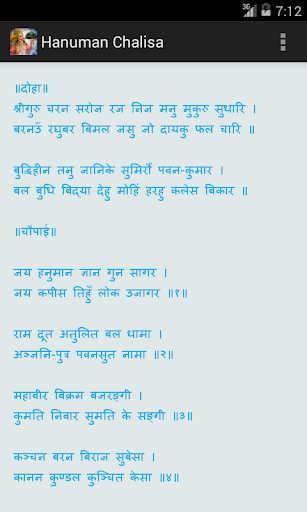 7:12
Hanuman Chalisa
॥दोहा॥
श्रीगुरु चरन सरोज रज निज मनु मुकुरु सुधारि ।
बरनउँ रघुबर बिमल जसु जो दायकु फल चारि ॥
बुद्धिहीन तनु जानिके सुमिरौं पवन-कुमार ।
बल बुधि बिद्या देहु मोहिं हरहु कलेस बिकार ॥
॥चौपाई॥
जय हनुमान ज्ञान गुन सागर ।
जय कपीस तिहुँ लोक उजागर ॥१॥
राम दूत अतुलित बल धामा ।
अञ्जनि-पुत्र पवनसुत नामा ॥२॥
महाबीर बिक्रम बजरङ्गी ।
कुमति निवार सुमति के सङ्गी ॥३॥
कञ्चन बरन बिराज सुबेसा ।
कानन कुण्डल कुञ्चित केसा ॥४॥